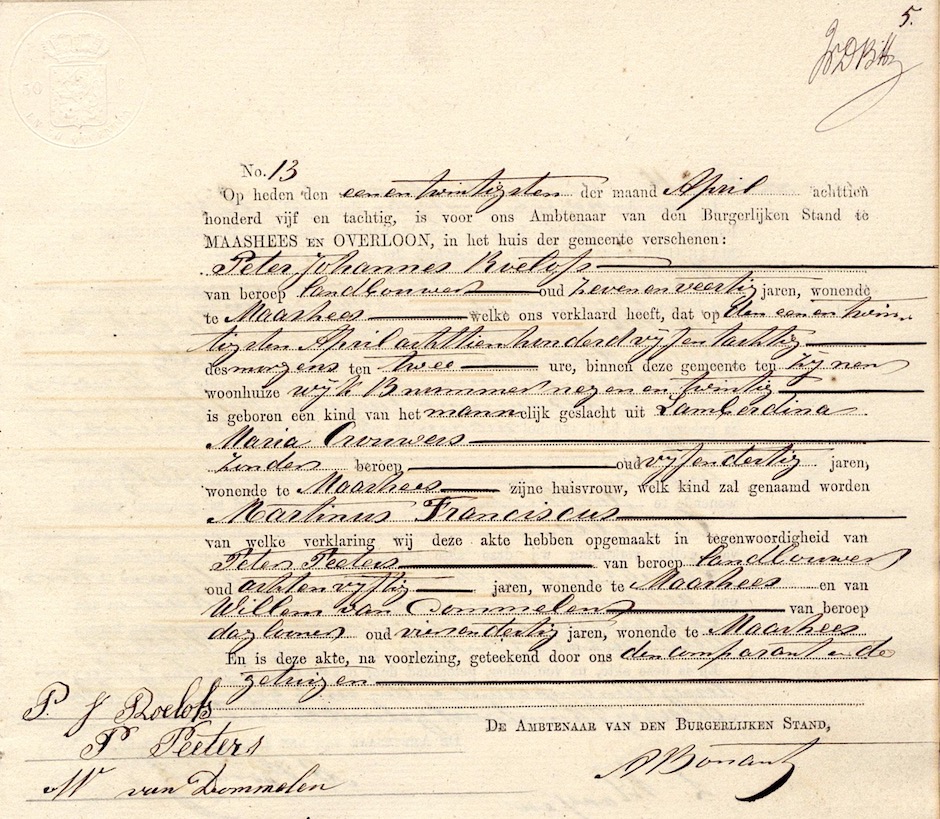 5.
No. 13
Op heden den eenentwintigsten der maand April achttien
honderd vijf en tachtig, is voor ons Ambtenaar van den Burgerlijken Stand te
MAASHEES EN OVERLOON, in het huis der gemeente verschenen:
Peter Johannes Roelofs
van beroep landbouwer oud zevenenveertig jaren, wonende
te Maashees welke ons verklaard heeft, dat op den eenentwin-
tigsten April achttienhonderd vijfentachtig
des morgens ten twee ure, binnen deze gemeente ten zijnen
woonhuize wijk B nummer negenentwintig
is geboren een kind van het mannelijk geslacht uit Lamberdina
Maria Crouwers
zonder beroep oud vijfendertig jaren,
wonende te Maashees zijne huisvrouw, welk kind zal genaamd worden
Martinus Franciscus
van welke verklaring wij deze akte hebben opgemaakt in tegenwoordigheid van
Peter Peeters van beroep landbouwer
oud achtenvijftig jaren, wonende te Maashees en van
Willem van Dommelen van beroep
daglooner oud vierendertig jaren, wonende te Maashees
En is deze akte, na voorlezing, geteekend door ons den comparant en de
getuigen
P. J Roelofs
DE AMBTENAAR VAN DEN BURGERLIJKEN STAND,
P Peeters
W van Dommelen